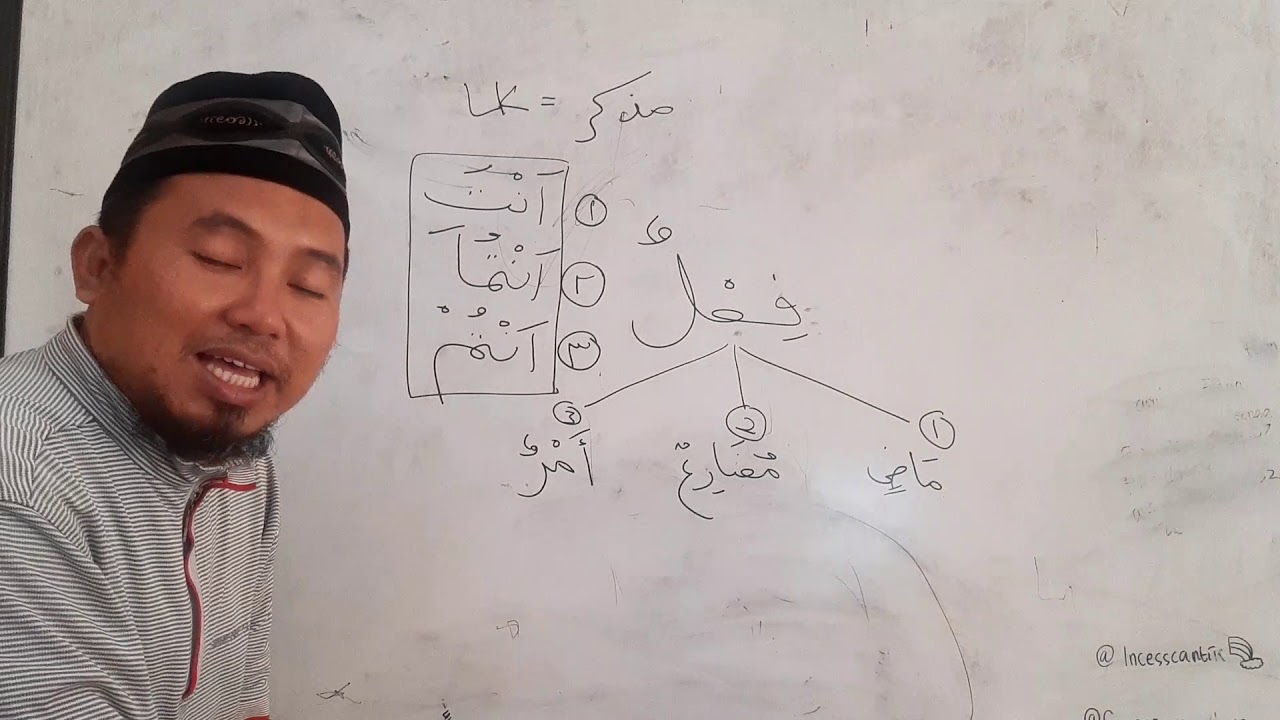 LK = مذكر
١ اَنْتَ
٢ اَنْتُمَا
٣ اَنْتُمْ
فِعْلٌ
١ مَاضِ
2 مُضَارِعٌ
3 أَمْرٌ
@ Incesscantik